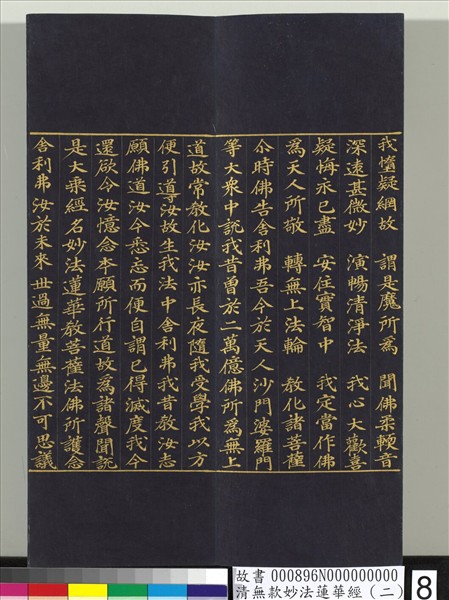 我墮疑網故　謂是魔所為　聞佛柔軟音
深遠甚微妙　演暢清淨法　我心大歡喜
疑悔永已盡　安住實智中　我定當作佛
為天人所敬　轉無上法輪　教化諸菩薩
尒時佛告舍利弗吾今於天人沙門婆羅門
等大衆中說我昔曽於二萬億佛所為無上
道故常教化汝汝亦長夜隨我受學我以方
便引導汝故生我法中舍利弗我昔教汝志
願佛道汝今悉忘而便自謂已得滅度我今
還欲令汝憶念本願所行道故為諸聲聞說
是大乘經名妙法蓮華教菩薩法佛所護念
舍利弗汝於未來世過無量無邊不可思議
故書 000896N000000000
清無款妙法蓮華經（二）
8